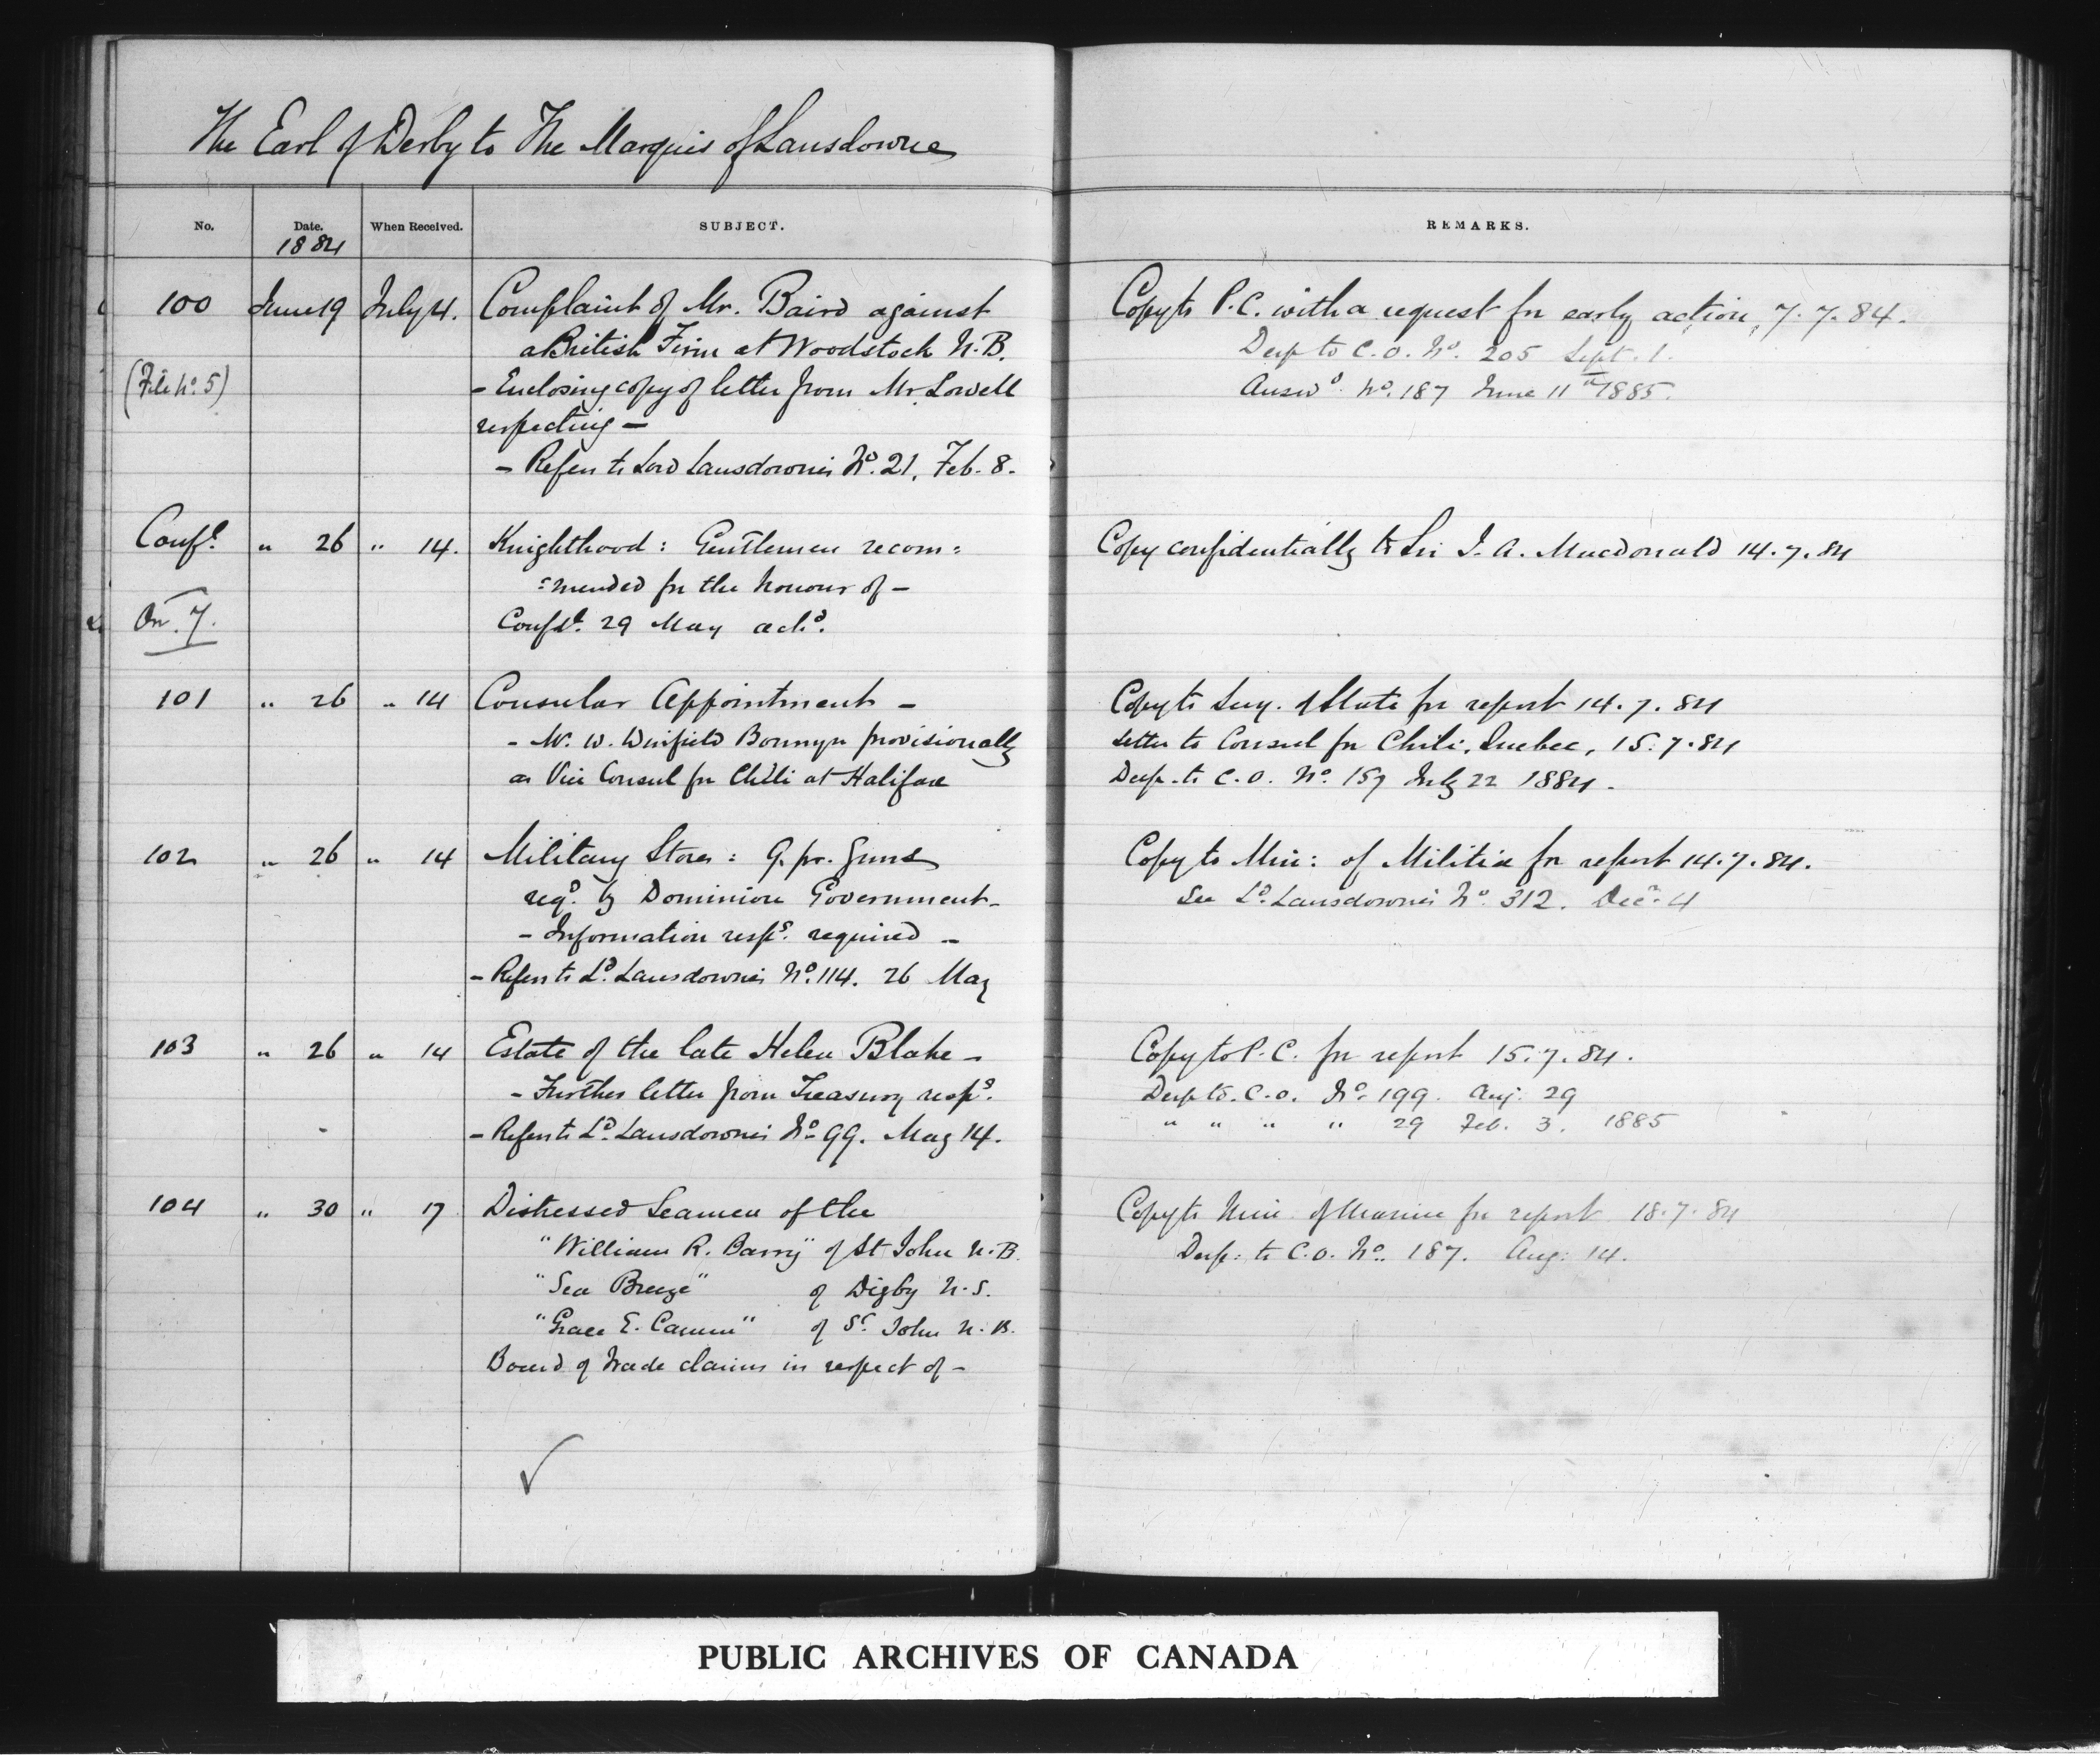 The Earl of Derby to The Marquis of Lansdowne
No. Date. When Received. SUBJECT. REMARKS.
1884
100 June 19 July 4. Complaint of Mr. Baird against
a British Firm at Woodstock N.B.
(File No. 5) - Enclosing copy of letter from Mr. Lowell
respecting -
- Refers to Lord Lansdowne's No. 21, Feb. 8.
Copy to P.C. with a request for early action, 7.7.84.
Desp to C.O. No. 205 Sept. 1.
Answd. No. 187 June 11th 1885.
Confl. " 26 " 14. Knighthood: Gentlemen recom=
=mended for the honour of -
Confdl. 29 May ackd.
Copy confidentially to Sir J. A. Macdonald 14.7.84
101 " 26 " 14 Consular Appointment -
- W. Winfield Bonnyn provisionally
as Vice Consul for Chili at Halifax
Copy to Secy. of State for report 14.7.84
Letter to Consul for Chili, Quebec, 15.7.84
Desp. to C.O. No. 157 July 22 1884.
102 " 26 " 14 Military Stores: 9. pr. Guns
reqd. by Dominion Government -
- Information respg. required -
- Refers to Ld. Lansdowne's No. 114. 26 May
Copy to Min: of Militia for report 14.7.84.
See Ld. Lansdowne's No. 312. Decr. 4
103 " 26 " 14 Estate of the late Helen Blake -
- Further letter from Treasury respg.
- Refers to Ld. Lansdowne's No. 99. May 14.
Copy to P.C. for report 15.7.84.
Desp to. C.O. No. 199. Aug: 29
" " " " 29 Feb. 3. 1885
104 " 30 " 17 Distressed Seamen of the
"William R. Barry" of St John N.B.
"Sea Breeze" of Digby N.S.
"Grace E. Cann" of St. John N.B.
Board of Trade claims in respect of -
Copy to Min. of Marine for report 18.7.84
Desp: to C.O. No. 187. Aug: 14.
PUBLIC ARCHIVES OF CANADA